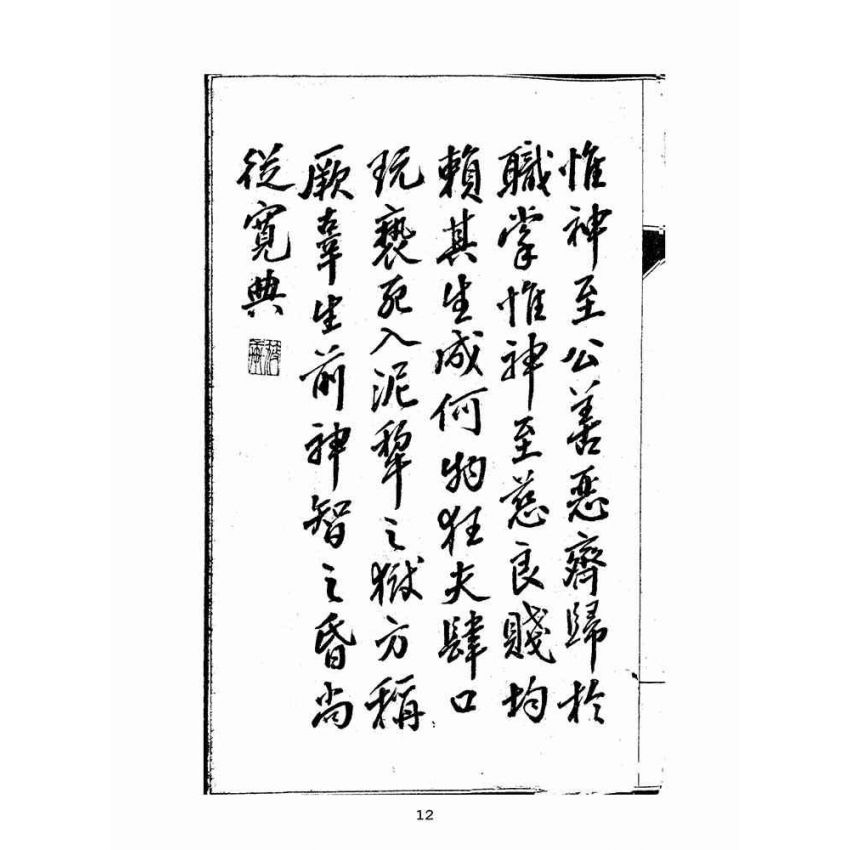 惟神至公善惡齊歸於
職掌惟神至慈良賤均
賴其生成何物狂夫肆口
玩褻死入泥犂之獄方稱
厥辜生前神智之昏尚
從寬典
12